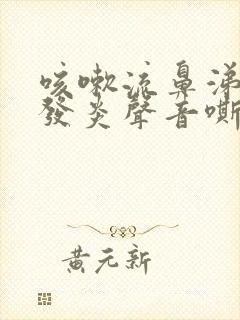 咳嗽流鼻涕
發炎聲音嘶
黃元新